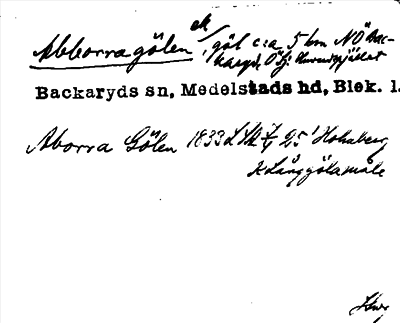 Abborragölen ek/, göl c:a 5 km NÖ Bac-
karyd, Ö
Backaryds sn, Medelstads hd, Blek. l.
Aborra Gölen 1833 25 Holmberg
Långgölamåla